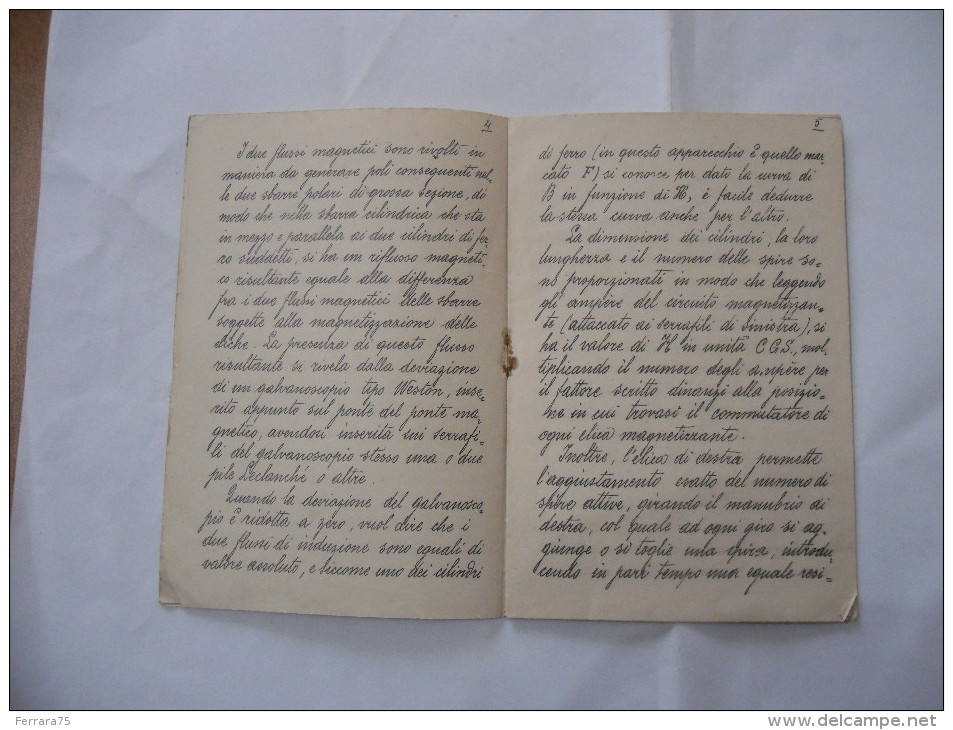 4
I due flussi magnetici sono rivolti in
maniera da generare poli conseguenti nel-
le due sbarre polari di grossa sezione, di
modo che nella sbarra cilindrica che sta
in mezzo e parallela ai due cilindri di fer-
ro suddetti, si ha un riflusso magneti-
co risultante eguale alla differenza
fra i due flussi magnetici delle sbarre
soggette alla magnetizzazione delle
eliche. La presenza di questo flusso
risultante si rivela dalla deviazione
di un galvanoscopio tipo Weston, inse-
rito appunto sul ponte del ponte ma-
gnetico, avendosi inserita sui serrafi-
li del galvanoscopio stesso una o due
pile Leclanché o altre.
Quando la deviazione del galvanosco-
pio è ridotta a zero, vuol dire che i
due flussi di induzione sono eguali di
valore assoluto, e siccome uno dei cilindri
5
di ferro (in questo apparecchio è quello mar-
cato F) si conosce per dato la curva di
B in funzione di H, è facile dedurre
la stessa curva anche per l'altro.
La dimensione dei cilindri, la loro
lunghezza e il numero delle spire so-
no proporzionati in modo che leggendo
gli ampère del circuito magnetizzan-
te (attaccato ai serrafili di sinistra), si
ha il valore di H in unità C G S., mol-
tiplicando il numero degli ampère per
il fattore scritto dinanzi alla posizio-
ne in cui trovasi il commutatore di
ogni elica magnetizzante.
Inoltre, l'elica di destra permette
l'aggiustamento esatto del numero di
spire attive, girando il manubrio di
destra, col quale ad ogni giro si ag-
giunge o si toglie una spira, introdu-
cendo in pari tempo una eguale resi-
Ferrara75
www.delcampe.net